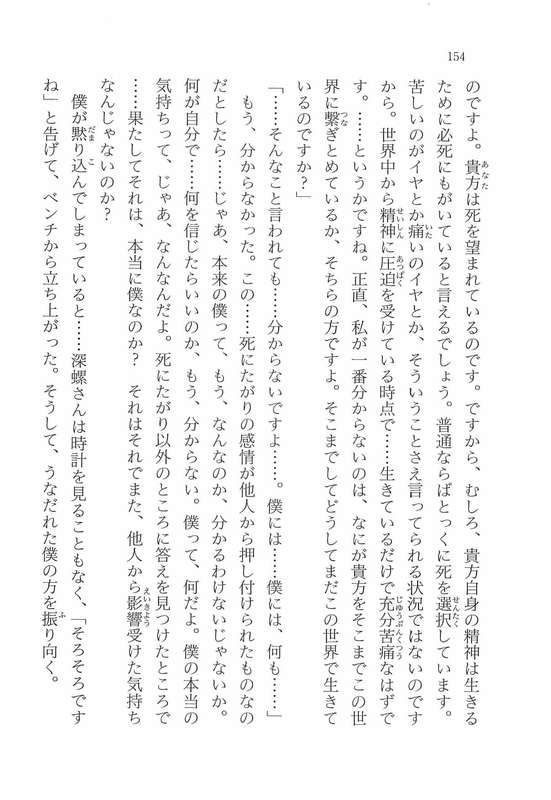 154
のですよ。貴方は死を望まれているのです。ですから、むしろ、貴方自身の精神は生きる
ために必死にもがいていると言えるでしょう。普通ならばとっくに死を選択しています。
苦しいのがイヤとか痛いのイヤとか、そういうことさえ言ってられる状況ではないのです
から。世界中から精神に圧迫を受けている時点で……生きているだけで充分苦痛なはずで
す。……というかですね。正直、私が一番分からないのは、なにが貴方をそこまでこの世
界に繫ぎとめているか、そちらの方ですよ。そこまでしてどうしてまだこの世界で生きて
いるのですか？」
「……そんなこと言われても……分からないですよ……。僕には……僕には、何も……」
もう、分からなかった。この……死にたがりの感情が他人から押し付けられたものなの
だとしたら……じゃあ、本来の僕って、もう、なんなのか、分かるわけないじゃないか。
何が自分で……何を信じたらいいのか、もう、分からない。僕って、何だよ。僕の本当の
気持ちって、じゃあ、なんなんだよ。死にたがり以外のところに答えを見つけたところで
……果たしてそれは、本当に僕なのか？　それはそれでまた、他人から影響受けた気持ち
なんじゃないのか？
僕が黙り込んでしまっていると……深螺さんは時計を見ることもなく、「そろそろです
ね」と告げて、ベンチから立ち上がった。そうして、うなだれた僕の方を振り向く。